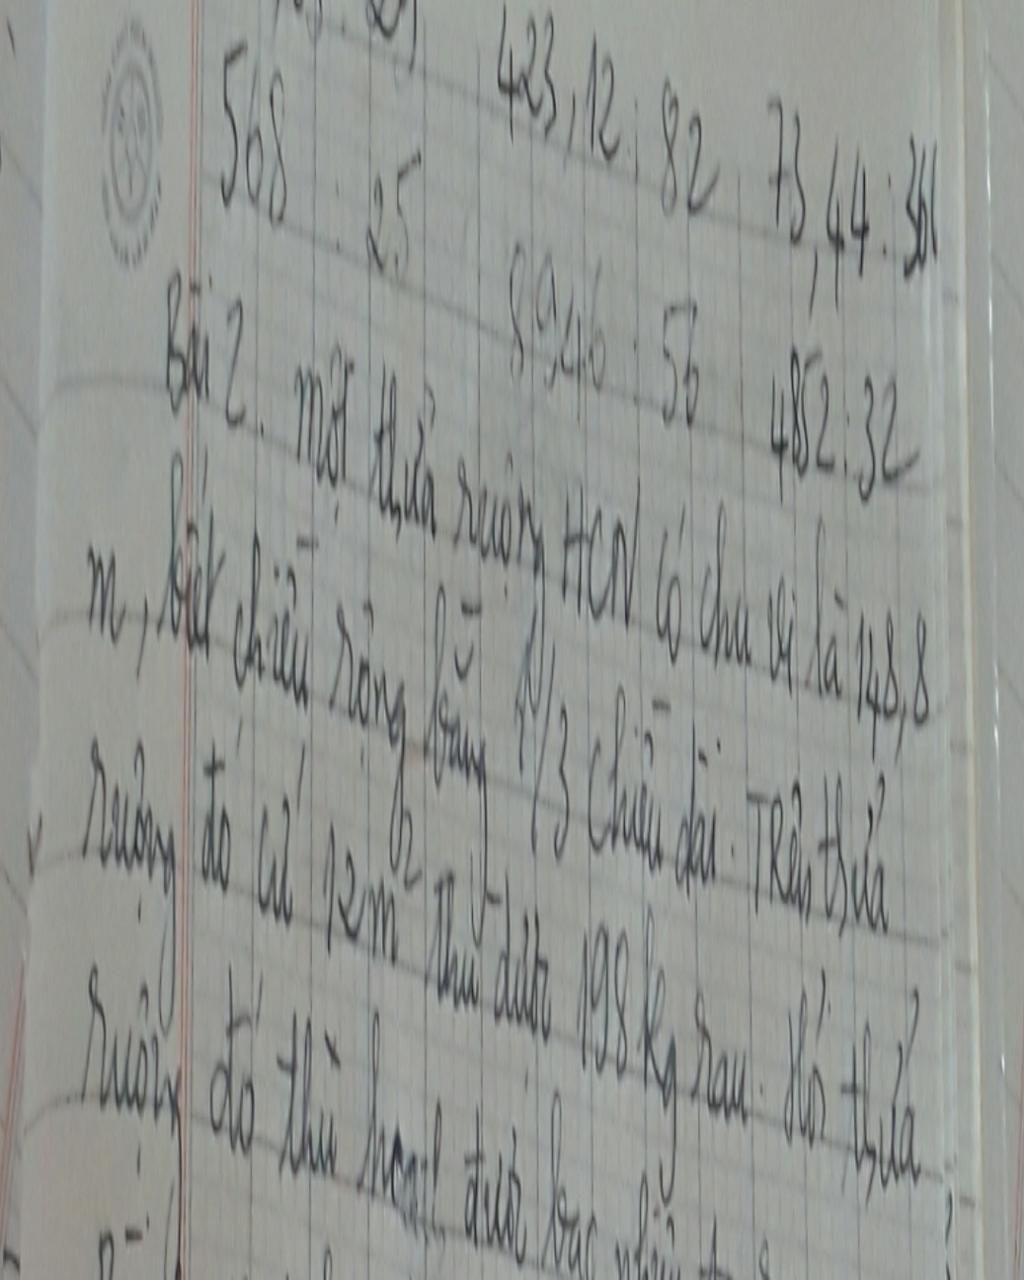 423,12 : 82 73,44 : 36
568 : 25 8946 : 56 482 : 32
Bài 2. một thửa ruộng HCN có chu vi là 148,8
m, biết chiều rộng bằng 1/3 chiều dài. Trên thửa
ruộng đó cứ 12m² thu được 198 kg rau. Hỏi thửa
ruộng đó thu hoạch được bao nhiêu